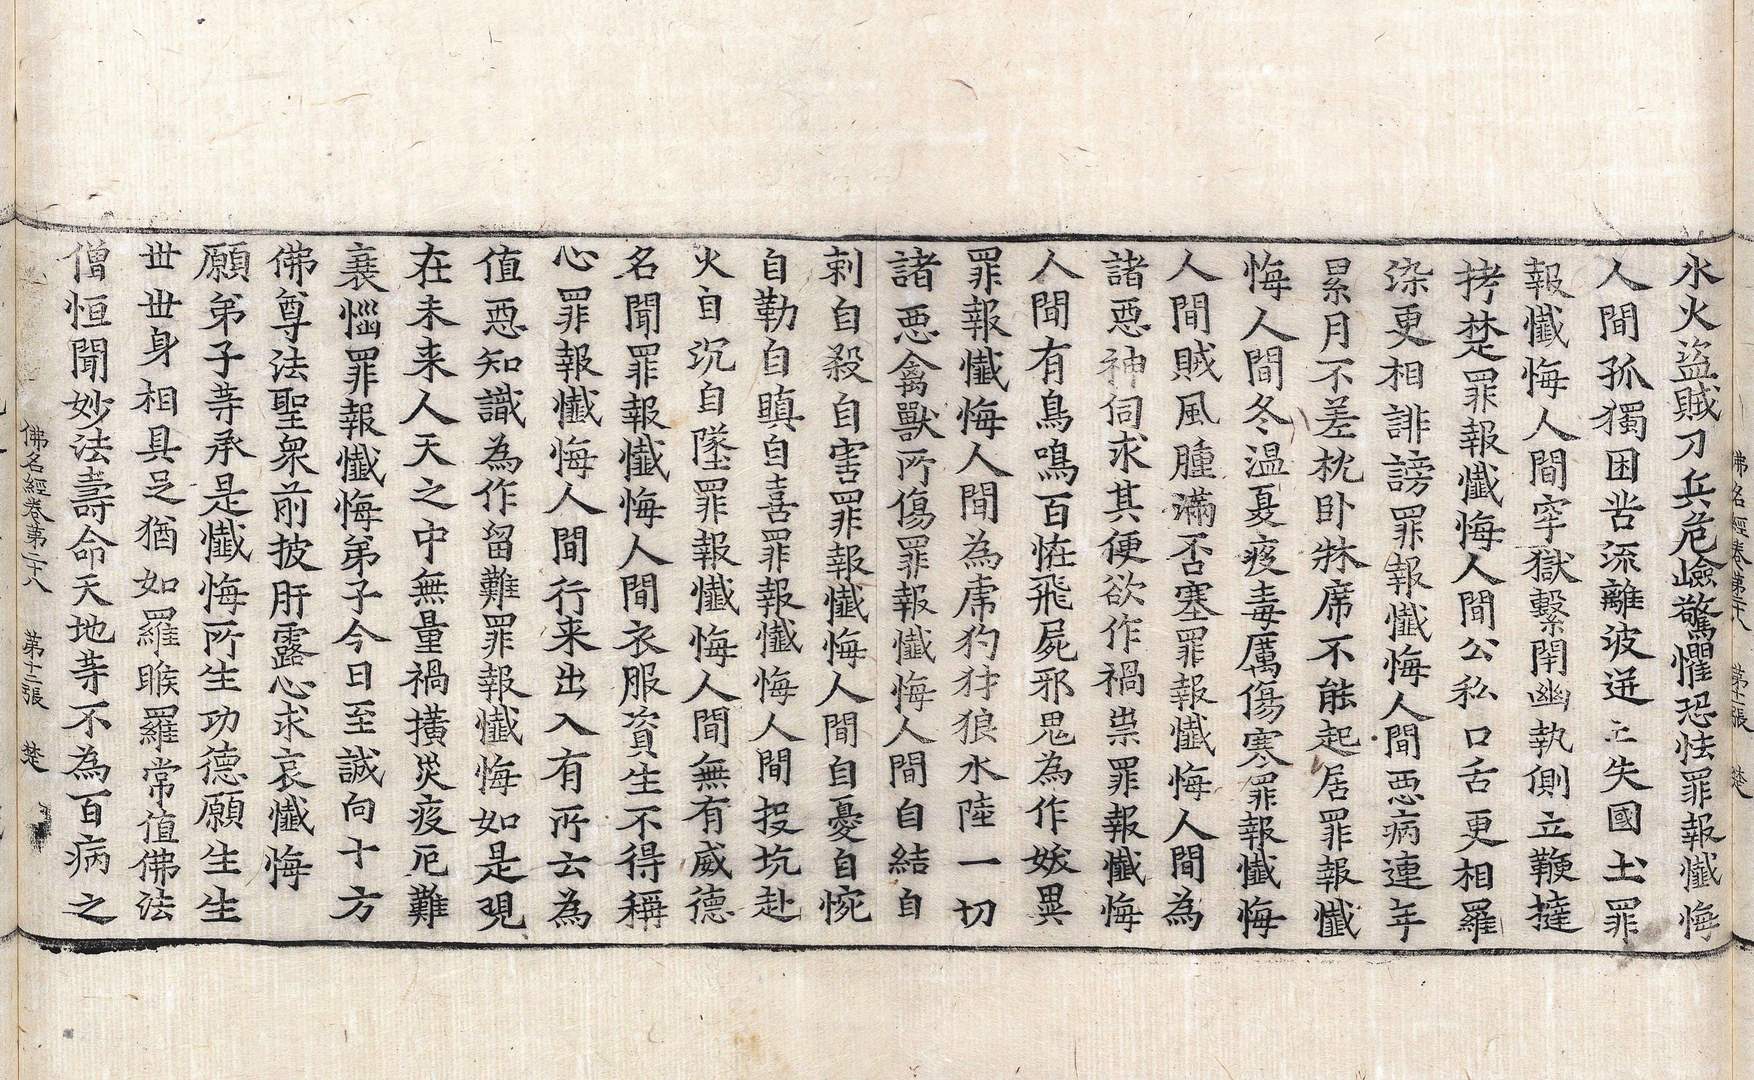 佛名經卷第二十八 第十一張 楚
水火盜賊刀兵危嶮驚懼恐怯罪報懺悔
人間孤獨困苦流離波迸亡失國土罪
報懺悔人間牢獄繫閉幽執側立鞭撻
拷楚罪報懺悔人間公私口舌更相羅
染更相誹謗罪報懺悔人間惡病連年
累月不差枕卧牀席不能起居罪報懺
悔人間冬温夏疫毒厲傷寒罪報懺悔
人間賊風腫滿否塞罪報懺悔人間為
諸惡神伺求其便欲作禍祟罪報懺悔
人間有鳥鳴百恠飛屍邪鬼為作妖異
罪報懺悔人間為虎豹犲狼水陸一切
諸惡禽獸所傷罪報懺悔人間自結自
刺自殺自害罪報懺悔人間自憂自惋
自勒自瞋自喜罪報懺悔人間投坑赴
火自沉自墜罪報懺悔人間無有威德
名聞罪報懺悔人間衣服資生不得稱
心罪報懺悔人間行来出入有所云為
值惡知識為作留難罪報懺悔如是現
在未来人天之中無量禍撗災疫厄難
衰惱罪報懺悔弟子今日至誠向十方
佛尊法聖衆前披肝露心求哀懺悔
願弟子等承是懺悔所生功德願生生
世世身相具足猶如羅睺羅常值佛法
僧恒聞妙法壽命天地等不為百病之
佛名經卷第二十八 第十二張 楚